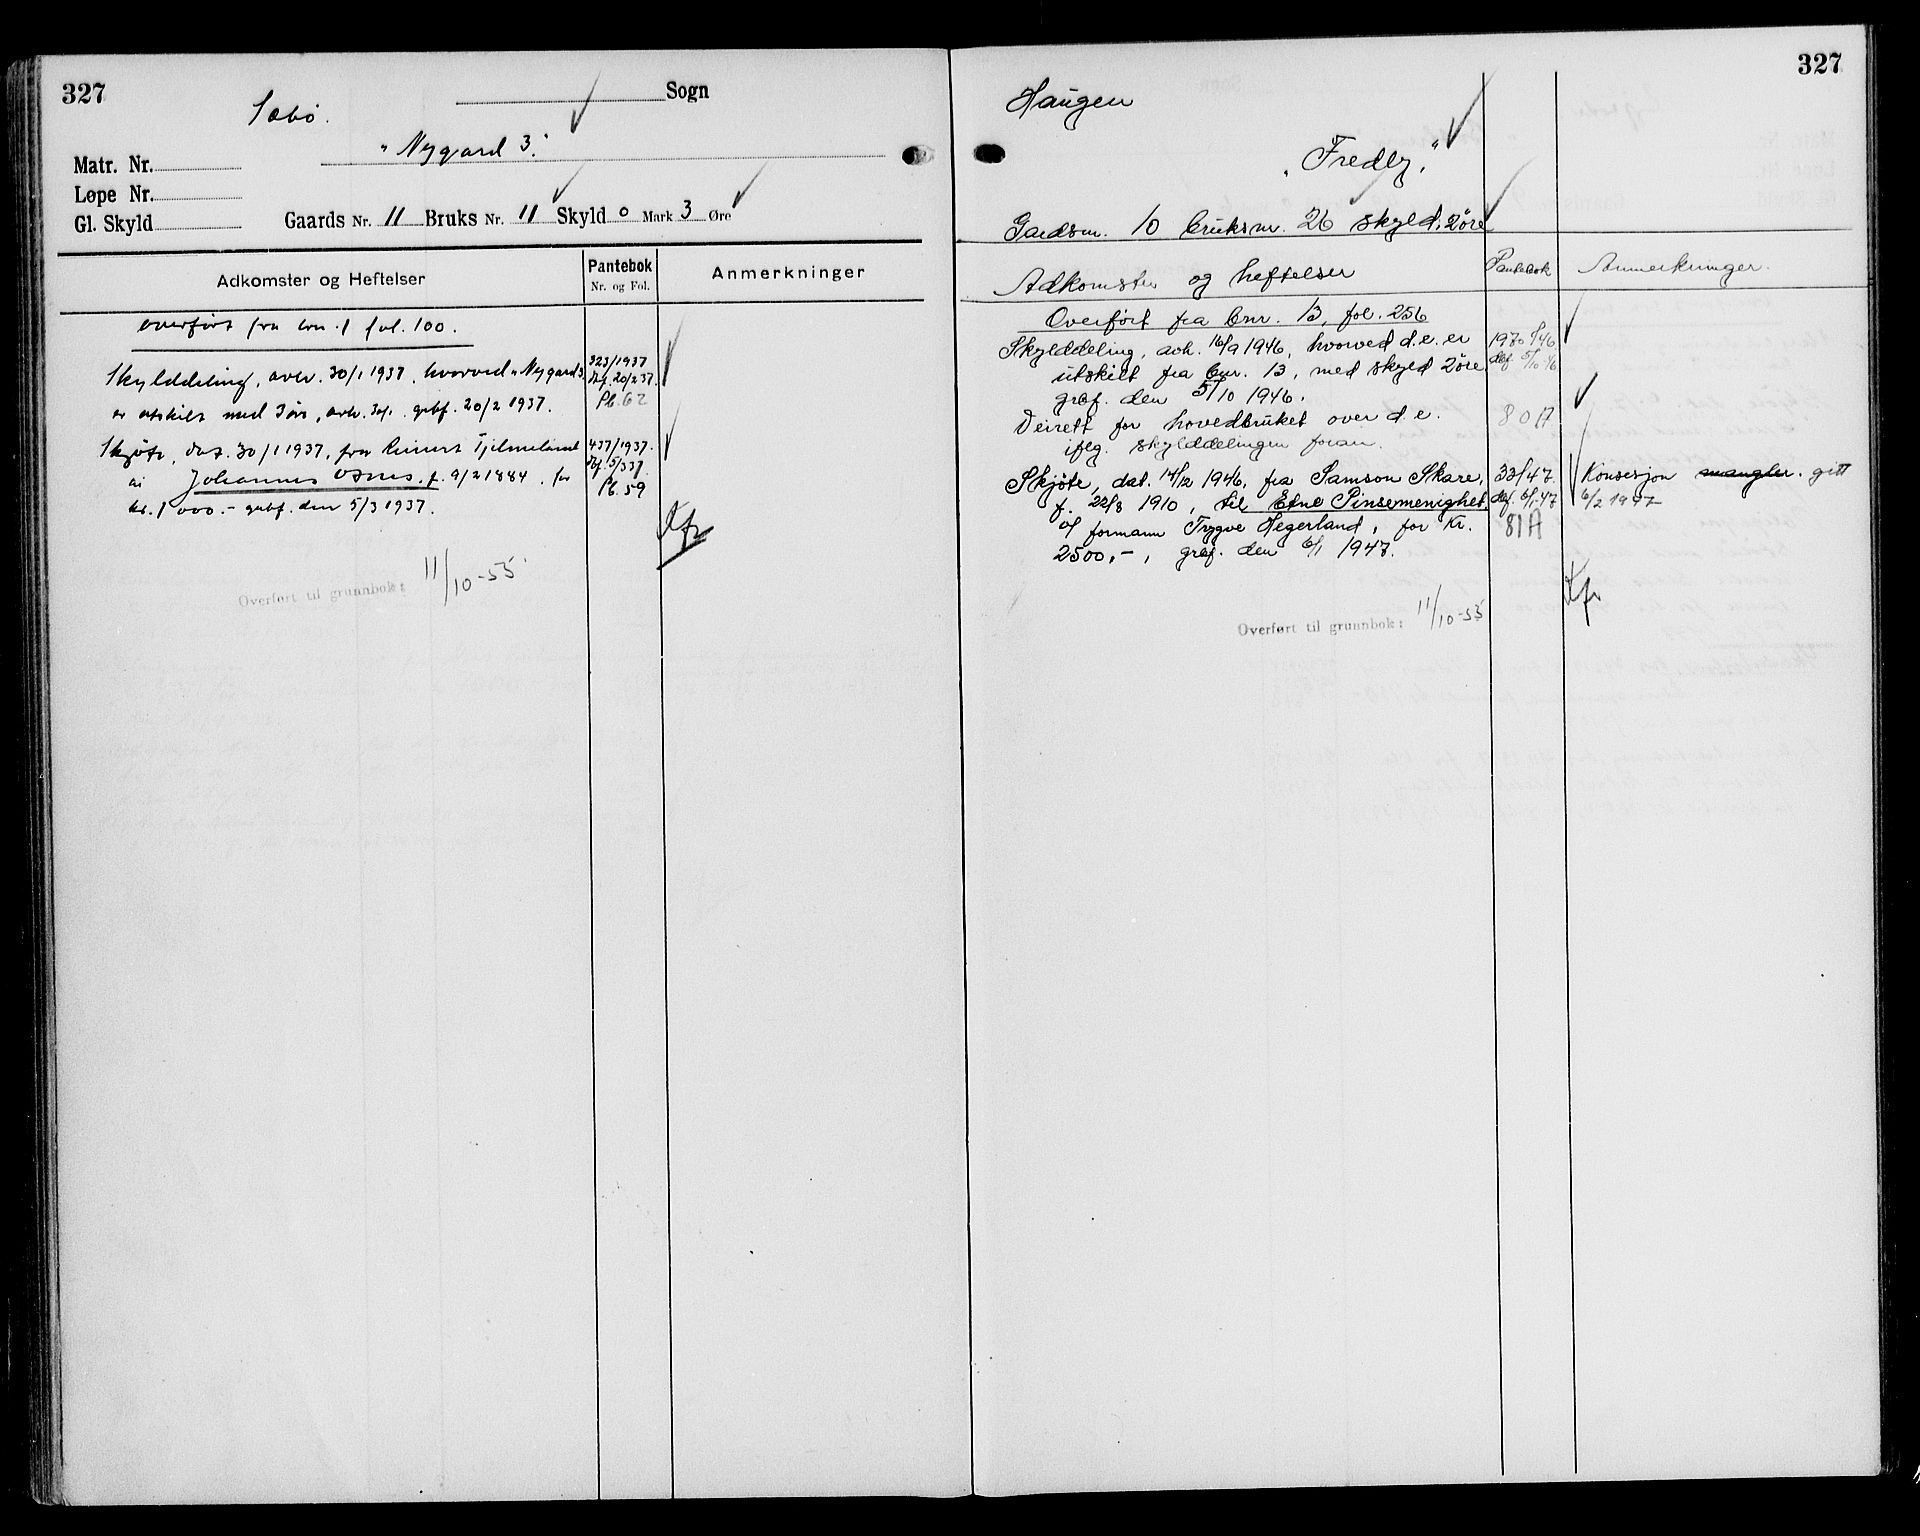 327
Sogn
Sæbø.
"Nygard 3."
Matr. Nr.
Løpe Nr.
Gl. Skyld
Gaards Nr. 11 Bruks Nr. 11 Skyld 0 Mark 3 Øre
Adkomster og Heftelser
Pantebok
Nr. og Fol.
Anmerkninger
overført fra bnr. 1 fol. 100.
Skylddeling, avh. 30/1 1937, hvorved "Nygard 3"
er utskilt med 3 øre, avh. 30/1. grbf. 20/2 1937.
323/1937
Dbf. 20/2 37.
Pb. 62
Skjøte, dat. 30/1 1937, fra Reinert Tjelmeland
437/1937.
Dbf. 5/3 37.
Pb. 59
Johannes Osnes, f. 9/2 1884, for
kr. 1 000.- grbf. den 5/3 1937.
Overført til grunnbok: 11/10-55
327
Haugen
"Fredly,"
Gardsnr. 10 bruksnr. 26 skyld: 2 øre
Adkomster og heftelser
Pantebok
Anmerkninger.
Overført fra bnr. 13, fol. 256
Skylddeling, avh. 16/9 1946, hvorved d.e. er
utskilt fra bnr. 13, med skyld 2 øre
grbf. den 5/10 1946.
1980/46
dbf. 5/10 46
Veirett for hovedbruket over d.e.
80 A
iflg. skylddelingen foran.
Skjøte, dat. 14/12 1946, fra Samson Skare,
f. 22/8 1910, til Etne Pinsemenighet
v/ formann Trygve Hegerland, for kr.
2500,-, grbf. den 6/1 1947.
33/47.
dbf. 6/1-47
81A
Konsesjon mangler. gitt
6/2 1947
Overført til grunnbok: 11/10-55